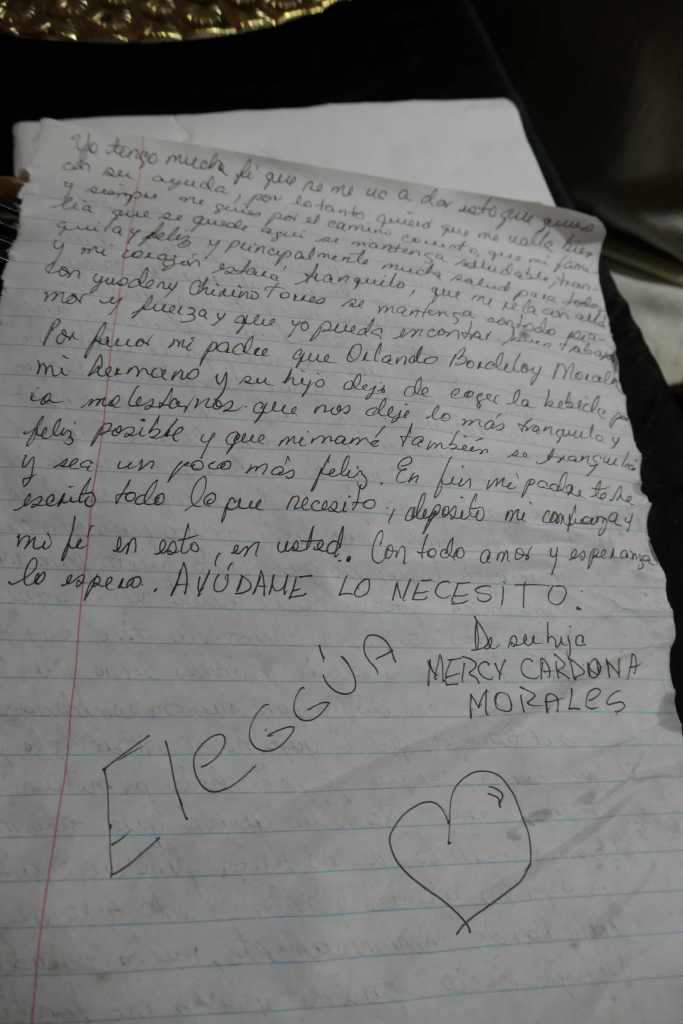 Yo tengo mucha fé que se me va a dar esto que quiero
con su ayuda, por lo tanto quiero que me vaya bien
y siempre me guíes por el camino correcto, que mi fami-
lia que se quede aquí se mantenga saludable, tran-
quila y feliz y principalmente mucha salud para todos
y mi corazón estará tranquilo, que mi relación
con Chirino Torres se mantenga con todo
mor y fuerza y que yo pueda encontrar buen trabajo
Por favor mi padre que Orlando Bordeloy Morales
mi hermano y su hijo deje de coger la bebida
molestarnos que nos deje lo más tranquilo y
feliz posible y que mi mamá también se
y sea un poco más feliz. En fin mi padre te he
escrito todo lo que necesito, deposito mi confianza y
mi fé en esto, en usted. Con todo amor y esperanza
lo espero. AYÚDAME LO NECESITO.
De su hija
MERCY CARDONA
MORALES
EleGGÚA